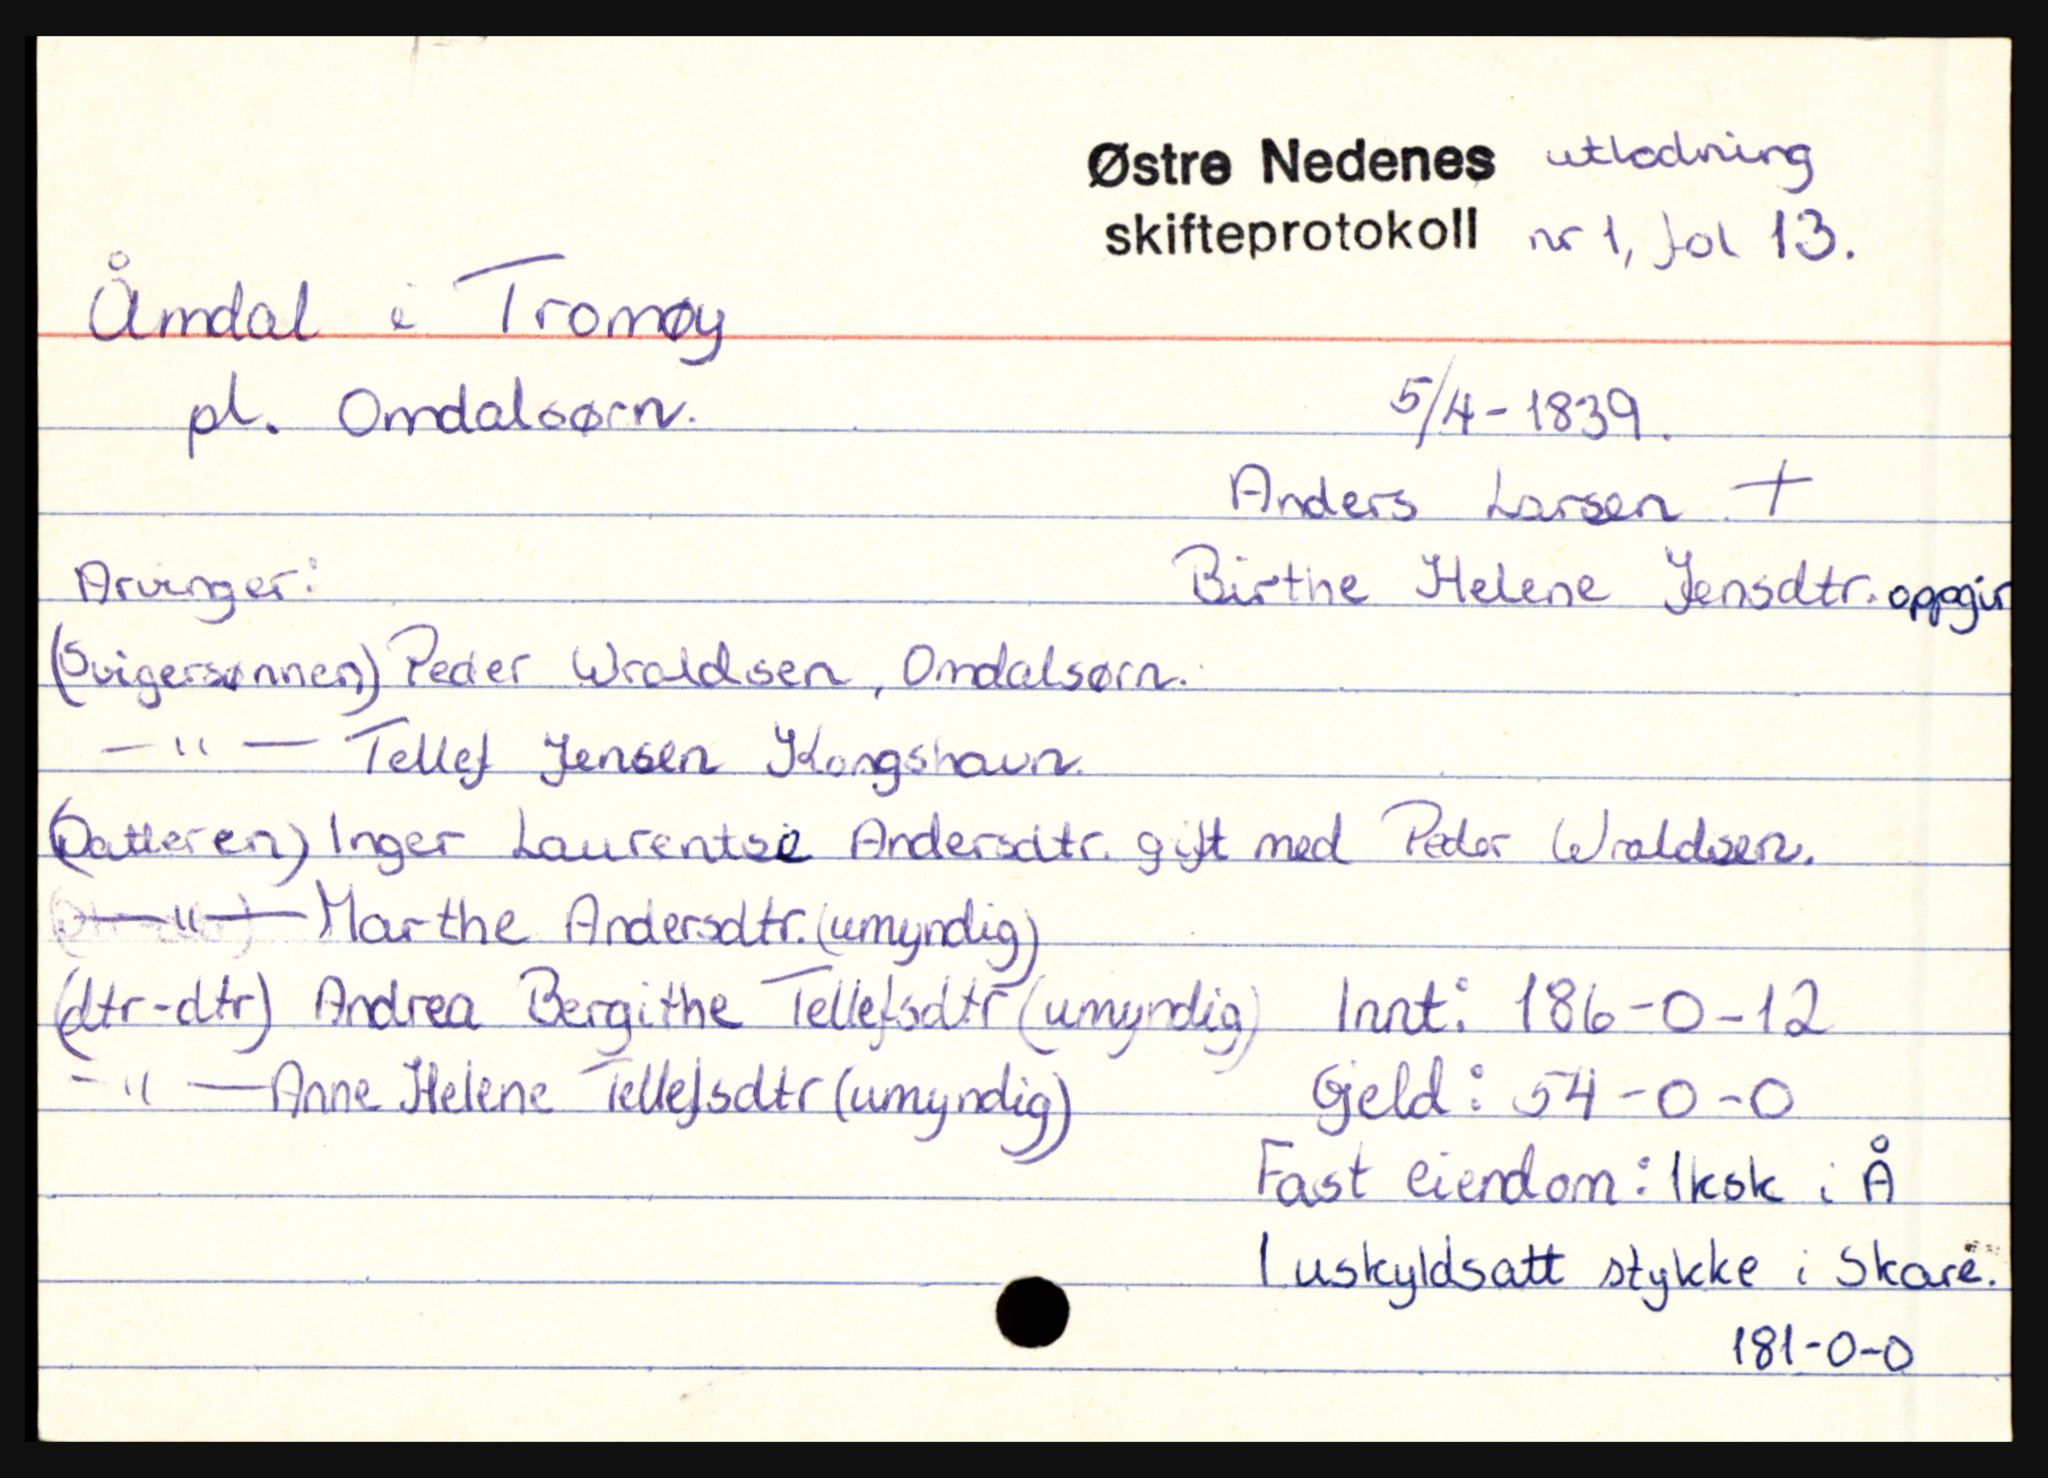 Østre Nedenes utlodning
skifteprotokoll nr 1, fol 13.
Åmdal i Tromøy
pl. Omdalsørn.
5/4-1839.
Anders Larsen +
Arvinger: Birthe Helene Jensdtr. oppgir
(Svigersønnen) Peder Wraldsen, Omdalsørn.
— " — Tellef Jensen Kongshavn.
(Datteren) Inger Laurentsie Andersdtr. gift med Peder Wraldsen.
— " — Marthe Andersdtr. (umyndig)
(dtr-dtr) Andrea Bergithe Tellefsdtr (umyndig) Innt: 186-0-12
- " — Anne Helene Tellefsdtr (umyndig) Gjeld: 54-0-0
Fast eiendom: 1ksk i Å
1 uskyldsatt stykke i Skare.
181-0-0